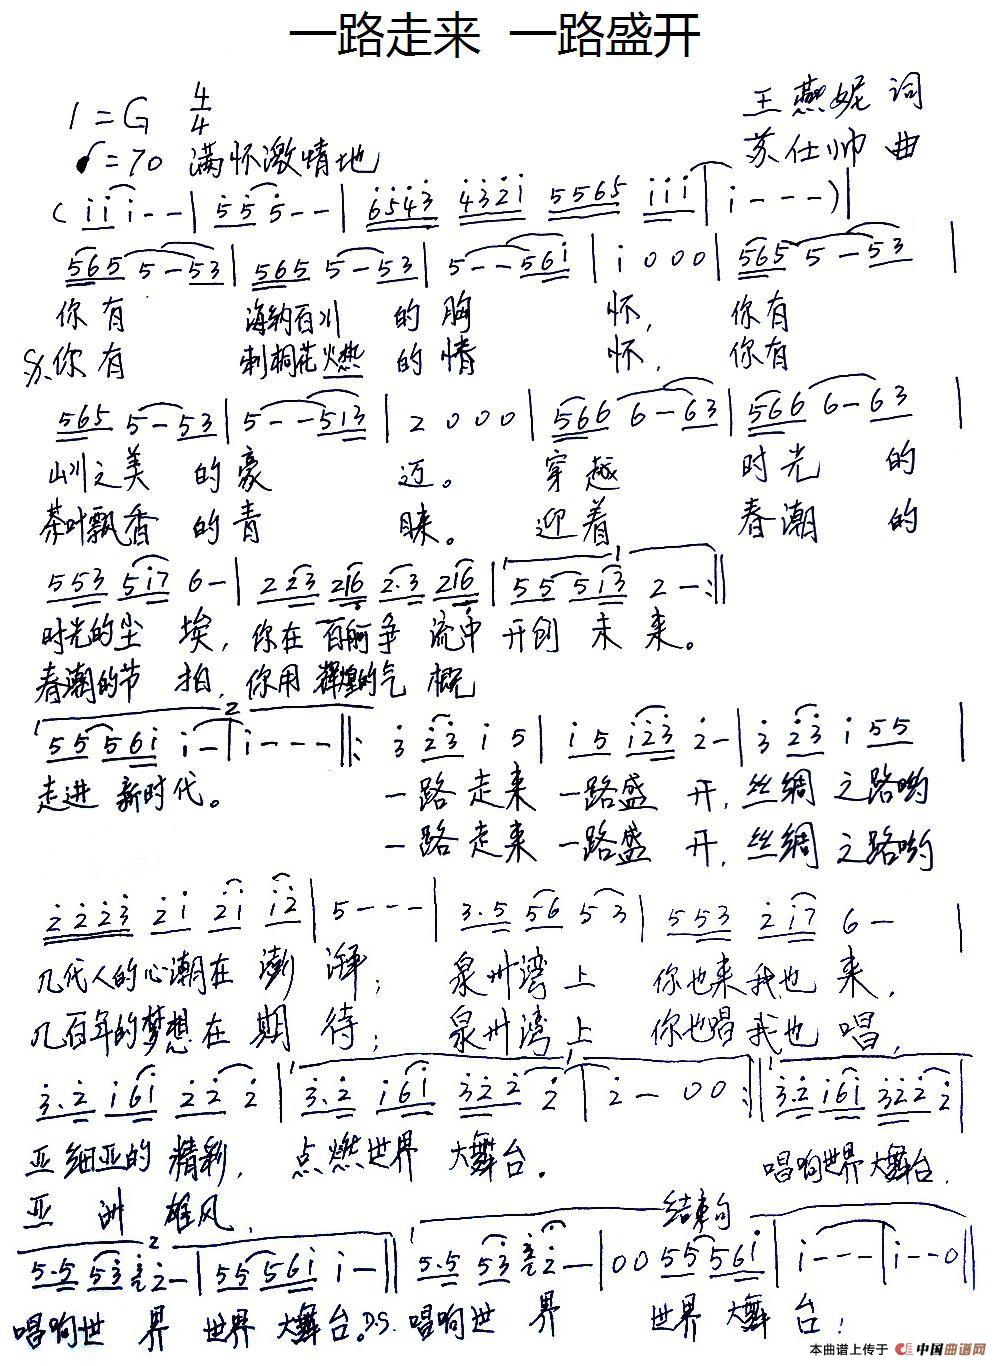 一路走来 一路盛开
1=G 4/4
王燕妮 词
♩=70 满怀激情地
苏仕帅 曲
(i i i - - | 5 5 5 - - | 6543 4321 5565 i i i | i - - - )|
565 5-53 | 565 5-53 | 5--561 | i 0 0 0 | 565 5-53 |
你有 海纳百川 的胸 怀, 你有
你有 刺桐花火燃 的情 怀, 你有
565 5-53 | 5--513 | 2 0 0 0 | 566 6-63 | 566 6-63 |
山川之美 的豪 迈。 穿越 时光 的
茶叶飘香 的青 睐。 迎着 春潮 的
553 517 6- | 223 216 2·3 216 | 1 55 513 2- :||
时光的尘 埃, 你在 百舸争 流中 开创 未 来。
春潮的节 拍, 你用 辉煌的气 概
2
55 561 i- | i - - - ||: 3 23 i 5 | i5 i23 2- | 3 23 i 55 |
走进 新时代。 一路走来 一路盛 开, 丝绸 之路哟
一路走来 一路盛 开, 丝绸 之路哟
2223 2i 2i i2 | 5 - - - | 3·5 56 53 | 553 2i7 6- |
几代人的心潮在 澎 湃; 泉州湾上 你也来我也 来,
几百年的梦想在 期 待; 泉州湾上 你也唱我也 唱,
3·2 i6i 22 2 | 1 3·2 i6i 322 2 | 2- 00 :|| 3·2 i6i 322 2 |
亚细亚的 精彩, 点燃世界 大舞台。 唱响世界大舞台,
亚 洲 雄风,
结束句
2
5·5 53 2- | 55 561 i- || 5·5 53 2- | 00 55 561 | i - - - | i - - 0 ||
唱响世 界 世界 大舞台。D.S. 唱响世 界 世界 大舞 台!
本曲谱上传于 中国曲谱网